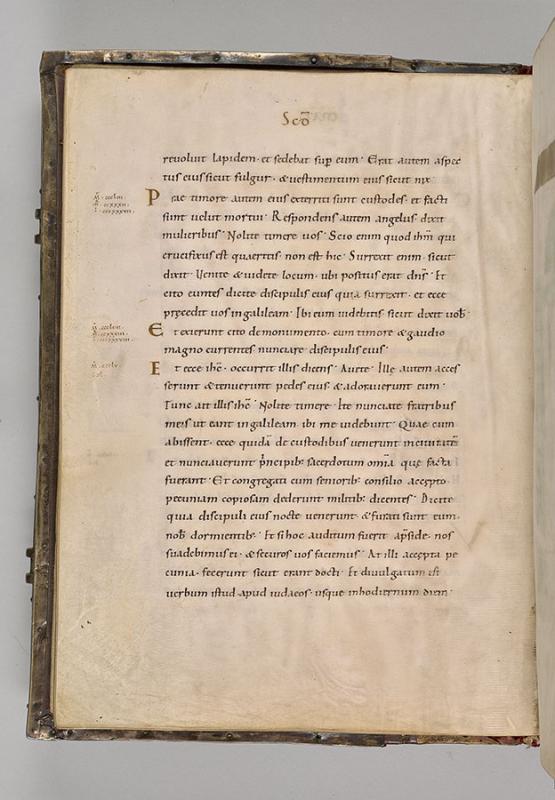 Scđ
reuoluit lapidem · et sedebat sup eum · Erat autem aspec
tus eius sicut fulgur · & uestimentum eius sicut nix
Prae timore autem eius exterriti sunt custodes · et facti
sunt uelut mortui · Respondens autem angelus dixit
mulieribus · Nolite timere uos · Scio enim quod ihm̄ qui
crucifixus est quaeritis · non est hic · Surrexit enim · sicut
dixit · Uenite & uidete locum · ubi positus erat dn̄s · Et
cito euntes dicite discipulis eius quia surrexit · et ecce
pręcedit uos in galileam · Ibi eum uidebitis sicut dixit uob·
Et exierunt cito de monumento · cum timore & gaudio
magno currentes nunciare discipulis eius ·
Et ecce ihc̄ · occurrit illis dicens · Auete · Ille autem acces
serunt & tenuerunt pedes eius · & adorauerunt eum ·
Tunc ait illis ihc̄ · Nolite timere · Ite nunciate fratribus
meis ut eant in galileam · ibi me uidebunt · Quae cum
abissent · ecce quidā de custodibus uenerunt in ciuitatē
et nunciauerunt prīncipib; sacerdotum om̄ia quę facta
fuerant · Et congregati cum seniorib; consilio accępto ·
pecuniam copiosam dederunt militib; dicentes · Dicite
quia discipuli eius nocte uenerunt · & furati sunt eum ·
nob̄ dormientib; · Et si hoc auditum fuerit a pręside · nos
suadebimus ei · & securos uos faciemus · At illi accępta pe
cunia · fecerunt sicut erant docti · Et diuulgatum est
uerbum istud apud iudaeos · usque in hodiernum diem ·